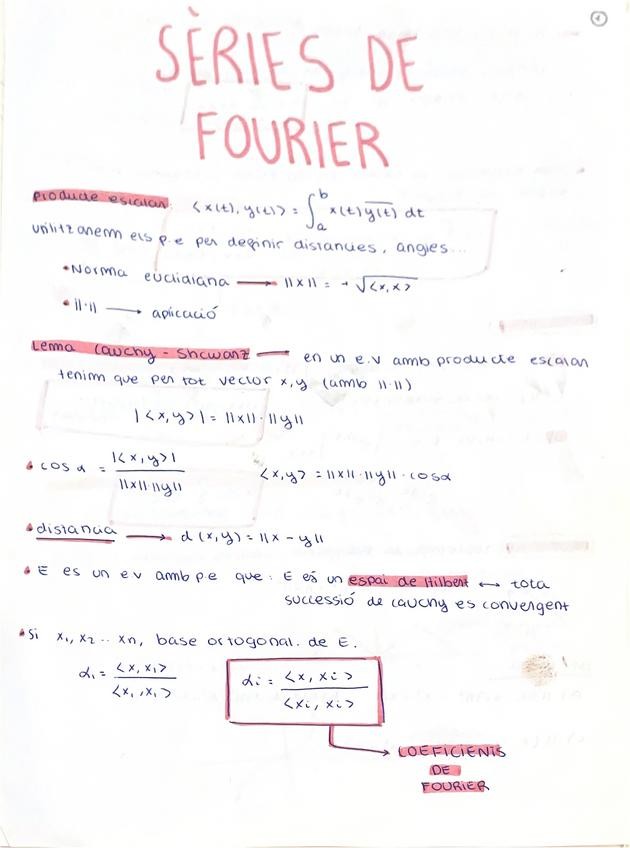 1
SÈRIES DE
FOURIER
producte escalar: <x(t), y(t)> = ∫_a^b x(t) \overline{y(t)} dt
utilitzarem els p.e per definir distancies, angles...
• Norma euclidiana → ||x|| = +√<x,x>
• ||·|| → aplicació
Lema Cauchy-Shcwarz → en un e.v amb producte escalar
tenim que per tot vector x,y (amb ||·||)
|<x,y>| = ||x||·||y||
• cos α = |<x,y>| / ||x||·||y||    <x,y> = ||x||·||y||·cosα
• distancia → d(x,y) = ||x - y||
• E es un ev amb p.e que: E és un espai de Hilbert ↔ tota
successió de cauchy es convergent
• Si x₁, x₂ .. xn, base ortogonal. de E.
α₁ = <x, x₁> / <x₁, x₁>    αi = <x, xi> / <xi, xi>
COEFICIENTS
DE
FOURIER